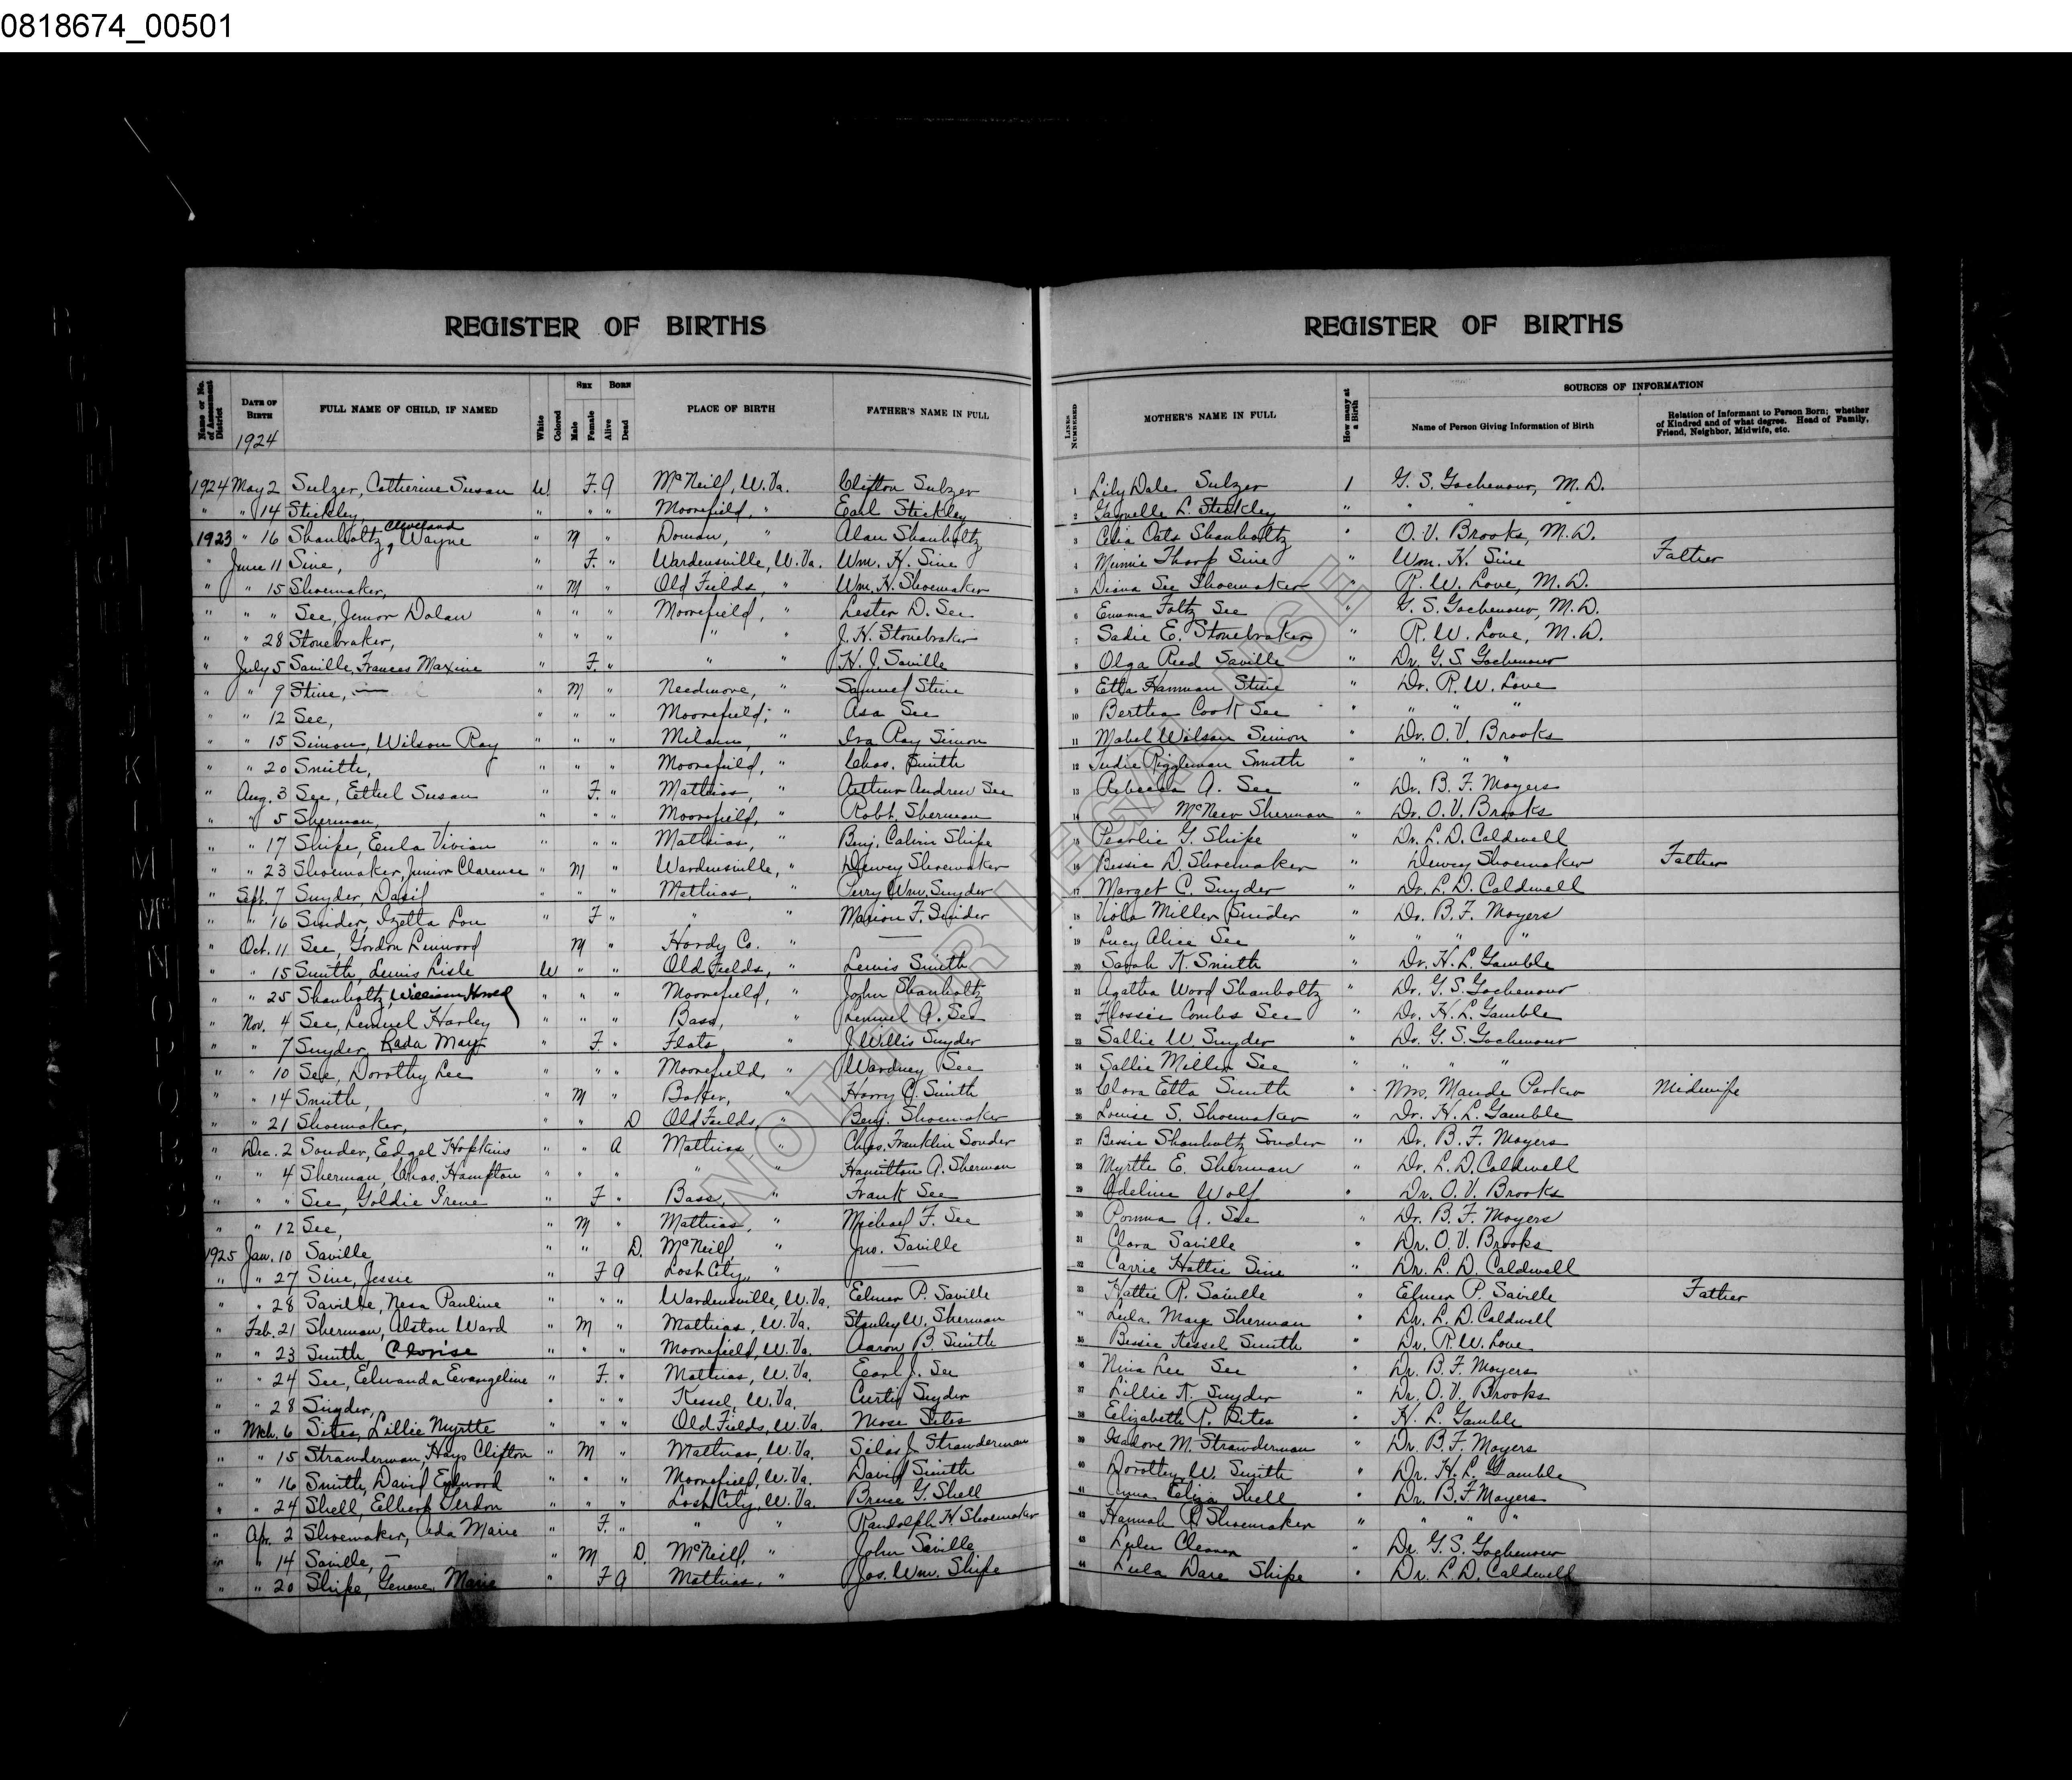 0818674_00501
REGISTER OF BIRTHS
Name or No. of Assessment District
DATE OF BIRTH
1924
FULL NAME OF CHILD, IF NAMED
White
Colored
SEX
Male
Female
BORN
Alive
Dead
PLACE OF BIRTH
FATHER'S NAME IN FULL
1924 May 2 Sulzer, Catherine Susan W. F. A McNeill, W. Va. Clifton Sulzer
" " 14 Stickley, " " " Moorefield, " Earl Stickley
Cleveland
1923 " 16 Shanholtz, Wayne " M " Doman, " Alan Shanholtz
" June 11 Sine, " F. " Wardensville, W. Va. Wm. H. Sine
" " 15 Shoemaker, " M " Old Fields, " Wm. H. Shoemaker
" " " See, Junior Dolan " " " Moorefield, " Lester D. See
" " 28 Stonebraker, " " " " " J. H. Stonebraker
" July 5 Saville, Frances Maxine " F. " " " H. J. Saville
" " 9 Stine, — " M " Needmore, " Samuel Stine
" " 12 See, " " " Moorefield, " Asa See
" " 15 Simon, Wilson Ray " " " Milam, " Ira Ray Simon
" " 20 Smith, " " " Moorefield, " Chas. Smith
" Aug. 3 See, Ethel Susan " F. " Mathias, " Arthur Andrew See
" " 5 Sherman, " " " Moorefield, " Robt. Sherman
" " 17 Shipe, Eula Vivian " " " Mathias, " Benj. Calvin Shipe
" " 23 Shoemaker, Junior Clarence " M " Wardensville, " Dewey Shoemaker
" Sept. 7 Snyder, Dasil " " " Mathias, " Perry Wm. Snyder
" " 16 Snider, Izetta Lou " F " " " Marion F. Snider
" Oct. 11 See, Gordon Linwood M " Hardy Co. " —
" " 15 Smith, Lewis Lisle W " " Old Fields, " Lewis Smith
" " 25 Shanholtz, William " " " Moorefield, " John Shanholtz
" Nov. 4 See, Lemuel Harley " " " Bass, " Lemuel A. See
" " 7 Snyder, Rada May " F. " Flats " J. Willis Snyder
" " 10 See, Dorothy Lee " " " Moorefield, " Wardney See
" " 14 Smith, " M " Baker, " Harry C. Smith
" " 21 Shoemaker, " " D Old Fields, " Benj. Shoemaker
" Dec. 2 Sonder, Edgel Hopkins " " A Mathias " Chas. Franklin Sonder
" " 4 Sherman, Chas. Hampton " " " " " Hamilton A. Sherman
" " " See, Goldie Irene " F " Bass, " Frank See
" " 12 See, " M " Mathias, " Michael F. See
1925 Jan. 10 Saville, " " D. McNeill, " Jno. Saville
" " 27 Sine, Jessie " F A Lost City, " —
" " 28 Saville, Nesa Pauline " " " Wardensville, W. Va. Elmer P. Saville
" Feb. 21 Sherman, Alston Ward " M " Mathias, W. Va. Stanley W. Sherman
" " 23 Smith, Clovise " " " Moorefield, W. Va. Aaron B. Smith
" " 24 See, Elwanda Evangeline " F. " Mathias, W. Va. Earl J. See
" " 28 Snyder, " " " Kessel, W. Va. Curtis Snyder
" Mch. 6 Sites, Lillie Myrtle " " " Old Fields, W. Va. Mose Sites
" " 15 Strawderman, Hays Clifton " M " Mathias, W. Va. Silas J. Strawderman
" " 16 Smith, David Edwood " " " Moorefield, W. Va. David Smith
" " 24 Shell, Elbert " " " Lost City, W. Va. G. Shell
" Apr. 2 Shoemaker, Ada Marie " F. " " " Randolph H. Shoemaker
" " 14 Saville, — " M D. McNeill, " John Saville
" " 20 Shipe, Geneve Marie " F A Mathias, " Jos. Wm. Shipe
REGISTER OF BIRTHS
LINES NUMBERED
MOTHER'S NAME IN FULL
How many at a Birth
SOURCES OF INFORMATION
Name of Person Giving Information of Birth
Relation of Informant to Person Born; whether of Kindred and of what degree. Head of Family, Friend, Neighbor, Midwife, etc.
1 Lily Dale Sulzer 1 G. S. Gochenour, M. D.
2 Garnelle L. Stickley " " "
3 Celia Oats Shanholtz " O. V. Brooks, M. D.
4 Minnie Thorp Sine " Wm. H. Sine Father
5 Diana See Shoemaker " R. W. Love, M. D.
6 Emma Foltz See " G. S. Gochenour, M. D.
7 Sadie E. Stonebraker " R. W. Love, M. D.
8 Olga Reed Saville " Dr. G. S. Gochenour
9 Etta Hamman Stine " Dr. R. W. Love
10 Bertha Cook See " " " "
11 Mabel Wilson Simon " Dr. O. V. Brooks
12 Tudie Riggleman Smith " " " "
13 Rebecca A. See " Dr. B. F. Moyers
14 McNeer Sherman " Dr. O. V. Brooks
15 Pearlie G. Shipe " Dr. L. D. Caldwell
16 Bessie D. Shoemaker " Dewey Shoemaker Father
17 Marget C. Snyder " Dr. L. D. Caldwell
18 Viola Miller Snider " Dr. B. F. Moyers
19 Lucy Alice See " " " "
20 Sarah K. Smith " Dr. H. L. Gamble
21 Agatha Wood Shanholtz " Dr. G. S. Gochenour
22 Flossie Combs See " Dr. H. L. Gamble
23 Sallie W. Snyder " Dr. G. S. Gochenour
24 Sallie Miller See " " " "
25 Clara Etta Smith " Mrs. Maude Parker Midwife
26 Louise S. Shoemaker " Dr. H. L. Gamble
27 Bessie Shanholtz Sonder " Dr. B. F. Moyers
28 Myrtle E. Sherman " Dr. L. D. Caldwell
29 Adeline Wolf " Dr. O. V. Brooks
30 A. See " Dr. B. F. Moyers
31 Clara Saville " Dr. O. V. Brooks
32 Carrie Hattie Sine " Dr. L. D. Caldwell
33 Hattie R. Saville " Elmer P. Saville Father
" Lula May Sherman " Dr. L. D. Caldwell
35 Bessie Kessel Smith " Dr. R. W. Love
36 Nina Lee See " Dr. B. F. Moyers
37 Lillie K. Snyder " Dr. O. V. Brooks
38 Elizabeth P. Sites " H. L. Gamble
39 Isadore M. Strawderman " Dr. B. F. Moyers
40 Dorothy W. Smith " Dr. H. L. Gamble
41 Anna Eliza Shell " Dr. B. F. Moyers
42 Hannah R. Shoemaker " " " "
43 Lulu Cleaver " Dr. G. S. Gochenour
44 Lula Dare Shipe " Dr. L. D. Caldwell
NOT FOR LEGAL USE